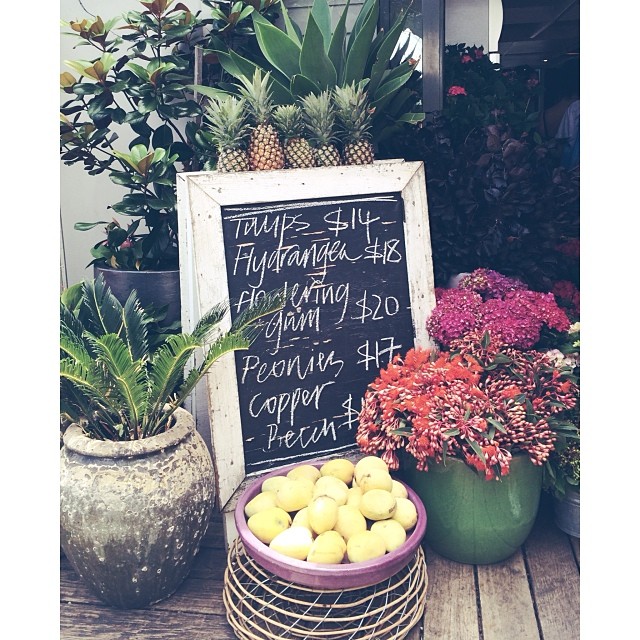 Tulips $14
Hydrangea $18
flowering
gum $20
Peonies $17
Copper
Beech $